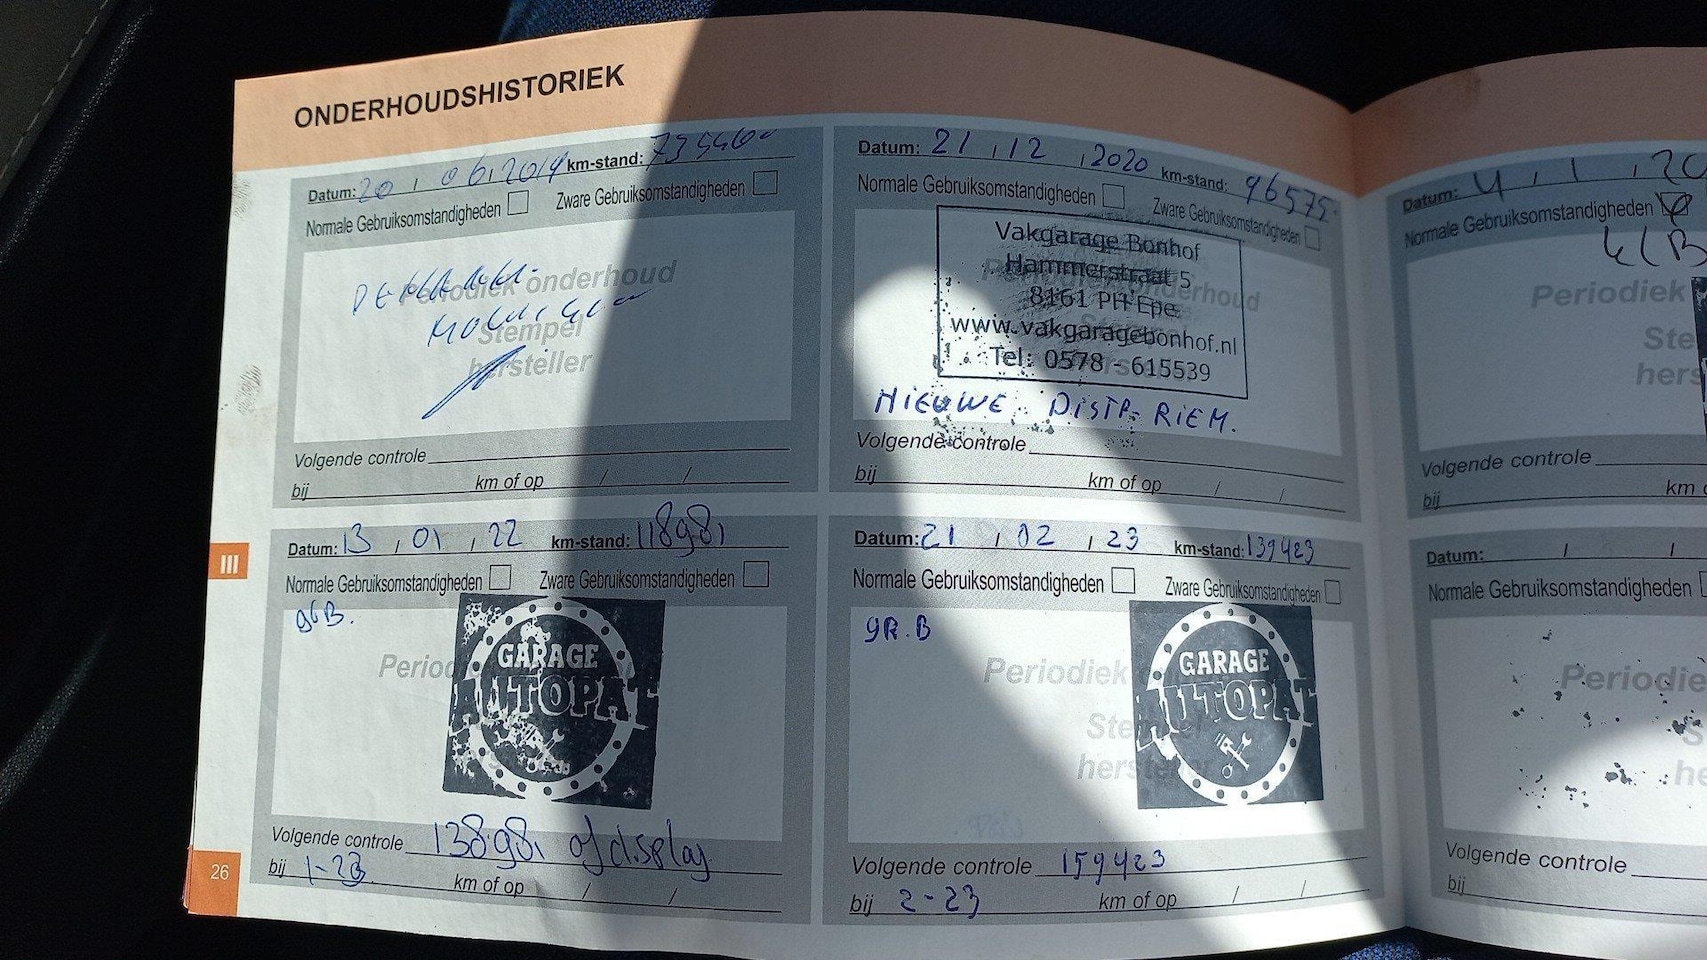 ONDERHOUDSHISTORIEK
Datum: 20 , 06, 2019 km-stand:
Normale Gebruiksomstandigheden Zware Gebruiksomstandigheden
Periodiek onderhoud
Stempel
hersteller
Volgende controle
bij km of op / /
Datum: 21 , 12 , 2020 km-stand: 96575
Normale Gebruiksomstandigheden Zware Gebruiksomstandigheden
Vakgarage Bonhof
Hammerstraat 5
8161 PH Epe
www.vakgaragebonhof.nl
Tel: 0578 - 615539
NIEUWE DISTR. RIEM.
Volgende controle
bij km of op / /
Datum: 13 , 01 , 22 km-stand: 118981
Normale Gebruiksomstandigheden Zware Gebruiksomstandigheden
GARAGE
AUTOPAT
Volgende controle 138981 of display
bij 1-23 km of op / /
Datum: 21 , 02 , 23 km-stand: 139423
Normale Gebruiksomstandigheden Zware Gebruiksomstandigheden
gR.B
Periodiek
GARAGE
AUTOPAT
Volgende controle 159423
bij 2-23 km of op / /
III
26
Datum: 4 , 1 , 20
Normale Gebruiksomstandigheden
Periodiek
Ste
hers
Volgende controle
bij km
Datum: / /
Normale Gebruiksomstandigheden
Periodie
Volgende controle
bij